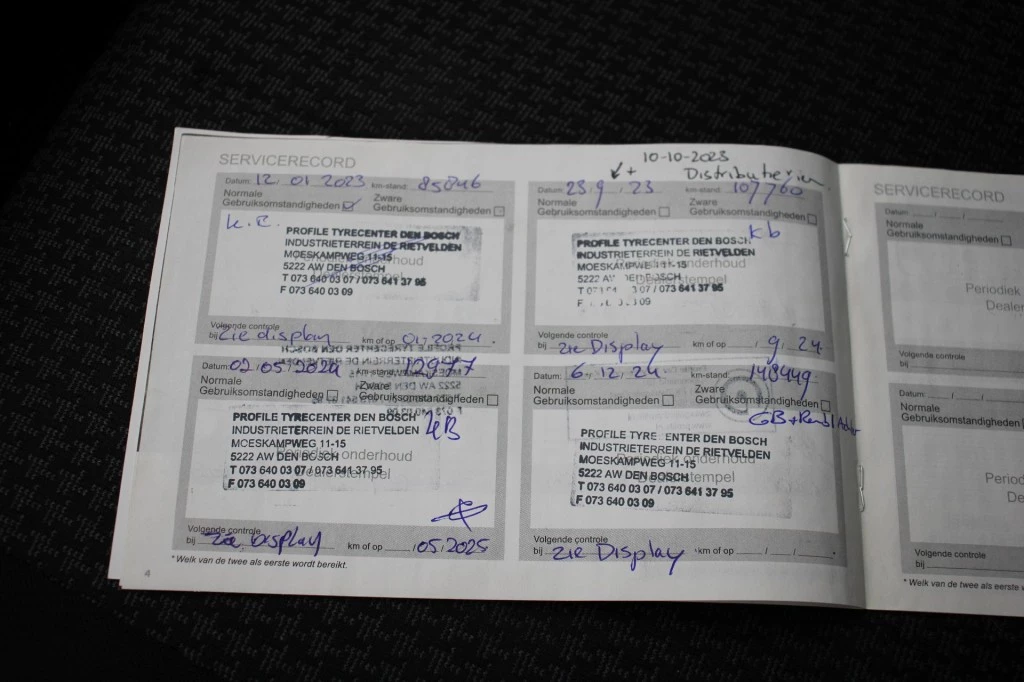 SERVICERECORD
Datum: 12.01.2023 km-stand: 85846
Normale Zware
Gebruiksomstandigheden Gebruiksomstandigheden
PROFILE TYRECENTER DEN BOSCH
INDUSTRIETERREIN DE RIETVELDEN
MOESKAMPWEG 11-15
5222 AW DEN BOSCH
T 073 640 03 07 / 073 641 37 95
F 073 640 03 09
Volgende controle
bij zie display km of op 01.2024.
Datum: 02.05.2024 km-stand:
Normale Zware
Gebruiksomstandigheden Gebruiksomstandigheden
PROFILE TYRECENTER DEN BOSCH
INDUSTRIETERREIN DE RIETVELDEN
MOESKAMPWEG 11-15
Periodiek onderhoud
5222 AW DEN BOSCH
Dealerstempel
T 073 640 03 07 / 073 641 37 95
F 073 640 03 09
Volgende controle
bij zie Display km of op 05.2025
* Welk van de twee als eerste wordt bereikt.
4
10-10-2023
+ Distributieriem
Datum: 23.9.23 km-stand: 107760
Normale Zware
Gebruiksomstandigheden Gebruiksomstandigheden
kb
PROFILE TYRECENTER DEN BOSCH
INDUSTRIETERREIN DE RIETVELDEN
MOESKAMPWEG 11-15
5222 AW DEN BOSCH
T 07 07 / 073 641 37 95
F 09
Volgende controle
bij zie Display km of op 9.24
Datum: 6.12.24 km-stand: 148449
Normale Zware
Gebruiksomstandigheden Gebruiksomstandigheden
GB+
PROFILE TYRECENTER DEN BOSCH
INDUSTRIETERREIN DE RIETVELDEN
Periodiek onderhoud
MOESKAMPWEG 11-15
5222 AW DEN BOSCH
Dealerstempel
T 073 640 03 07 / 073 641 37 95
F 073 640 03 09
Volgende controle
bij zie Display km of op
SERVICERECORD
Datum:
Normale
Gebruiksomstandigheden
Periodiek
Dealer
Volgende controle
bij
Datum:
Normale
Gebruiksomstandigheden
Period
De
Volgende controle
bij
* Welk van de twee als eerste w